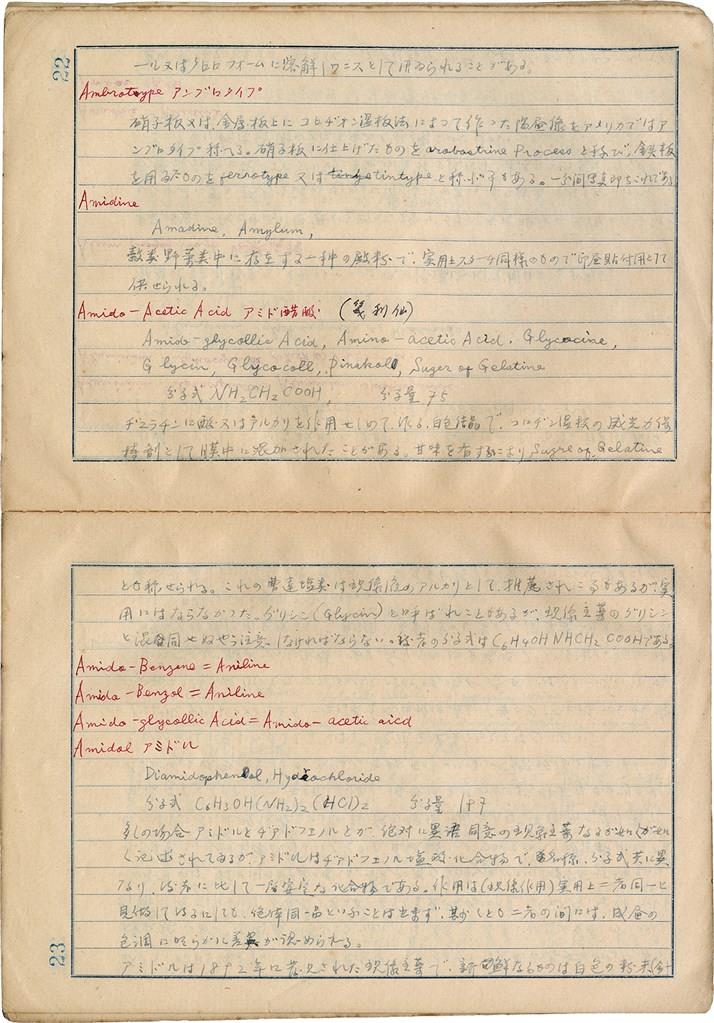 22
ール又はクロロフォームに溶解しワニスとして用ゐられることがある。
Ambrotype アンブロタイプ
硝子板又は金属板上にコロヂオン湿板法によって作った陽画像をアメリカではア
ンブロタイプと称へる。硝子板に仕上げたものを arabastrine Process と称び、鉄板
を用ゐたものを ferrotype 又は tintype と称ぶ事もある。
Amidine
Amadine, Amylum,
穀類野菜類中に存在する一種の澱粉で、実用上スターチ同様のもので印画貼付用として
供せられる。
Amido-Acetic Acid アミド醋酸 (幾利仙)
Amido-glycollic Acid, Amino-acetic Acid, Glycocine,
Glycin, Glycocoll, Pinakol, Suger of Gelatine
分子式 NH2CH2COOH, 分子量 75
ヂェラチンに酸又はアルカリを作用せしめて作る白色結晶で、コロヂオン湿板の感光力保
持剤として膜中に添加されたことがある。甘味を有するにより Sugre of Gelatine
とも称せられる。これの曹達塩類は現像液のアルカリとして、推薦されことあるが実
用にはならなかった。グリシン (Glycin) と呼ばれこともあるが、現像主薬のグリシン
と混同せぬやう注意しなければならない。後者の分子式は C6H4OH NHCH2 COOHである。
Amido-Benzene = Aniline
Amido-Benzol = Aniline
Amido-glycollic Acid = Amido-acetic aicd
Amidol アミドル
Diamidophenol, Hydrochloride
分子式 C6H3OH(NH2)2(HCl)2 分子量 197
多くの場合アミドルとヂアミドフェノルとが、絶対に異語同意の現像主薬なるが如く
く記述されてゐるが、アミドルはヂアミドフェノル塩酸化合物で、分子式共に異
なり、後者に比して一層安定な化合物である。作用は(現像作用)実用上二者同一と
見做して得るにしても、絶体同一品といふことは出来ず、二者の間には、成画の
色調に明らかに差異が認められる。
アミドルは1892年に発見された現像主薬で、新鮮なるものは白色の粉末
23